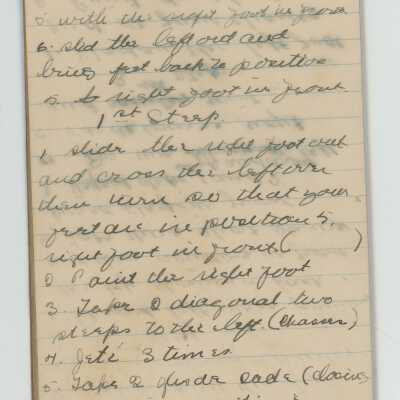 5. with the right foot in front
6. slid the left out and
bring feet back to position
5. to right foot in front
1st Steep.
1 slide the right foot out
and cross the left over
then turn so that your
feet are in position 5.
right foot in front. ( )
2 Point the right foot
3. Take 2 diagonal two
steeps to the left. (Chasser)
4. Jeté 3 times.
5. Take 2 glide side (closing